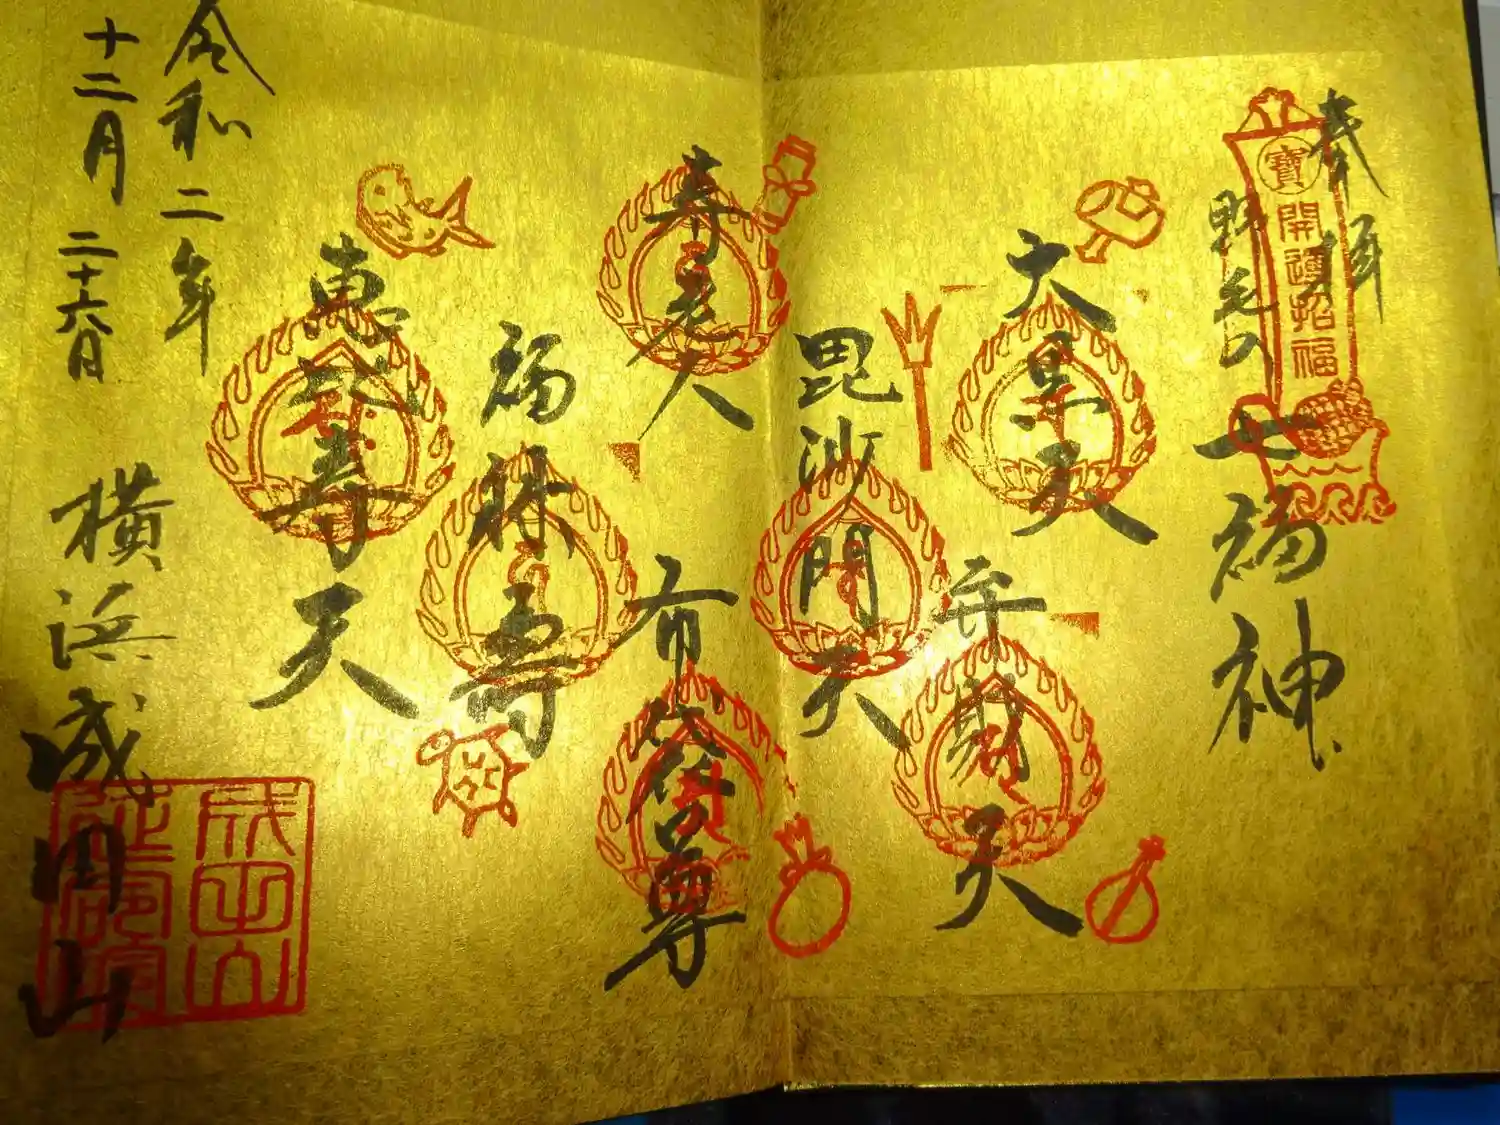 奉拝
野毛の
七福神
寶
開運招福
大黒天
弁財天
毘沙門天
寿老人
布袋尊
福禄寿
恵比寿天
令和二年
十二月二十六日
横浜成田山
成田山
延命院